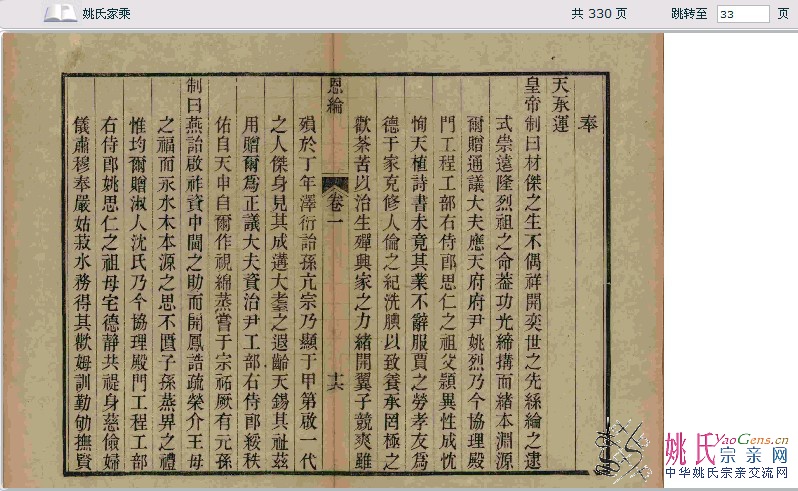 姚氏家乘
共 330 页
跳转至 33 页
奉
天承運
皇帝制曰材傑之生不偶祥開奕世之先綠綸之逮
式崇遠隆烈祖之命葢功光締搆而緒本淵源
爾贈通議大夫應天府府尹姚烈乃今協理殿
門工程工部右侍郎姚思仁之祖父頴異性成忱
恂天植詩書未竟其業不辭服賈之勞孝友爲
德于家克修人倫之紀洗腆以致養承罔極之
歡茶苦以治生殫興家之力緒開翼子競爽雖
恩綸
卷一
十六
殞於丁年澤衍詒孫亢宗乃顯于甲第啟一代
之人傑身見其成遘大耋之遐齡天錫其祉茲
用贈爾爲正議大夫資治尹工部右侍郎綏秩
佑自天申自爾作視綿蒸嘗于宗祏厥有元孫
制曰燕詒啟祚資中閫之助而開鳳誥疏榮介王母
之福而永水木本源之思不匱子孫蒸畀之禮
惟均爾贈淑人沈氏乃今協理殿門工程工部
右侍郎姚思仁之祖母宅德靜共禔身慈儉婦
儀肅穆奉嚴姑菽水務得其歡姆訓勤劬撫賢
姚氏 YaoGens.cn
宗亲网
中华姚氏宗亲交流网